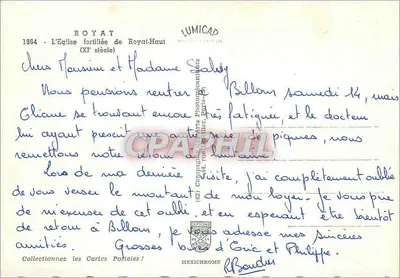 ROYAT
1864 - L'Eglise fortifiée de Royat-Haut
(XIe siècle)
LUMICAP
Chers Monsieur et Madame
Nous pensions rentrer à Billom samedi 14, mais
Eliane se trouvant encore très fatiguée, et le docteur
lui ayant prescrit une autre série de piqures, nous
remettons notre retour à huitaine.
Lors de ma dernière visite, j'ai complètement oublié
de vous verser le montant de mon loyer. Je vous prie
de m'excuser de cet oubli et en espérant être bientôt
de retour à Billom, je vous adresse mes sincères
amitiés. Grosses bises d'Eric et Philippe.
Collectionnez les Cartes Postales !
MEXICHROME
CPAPHIL